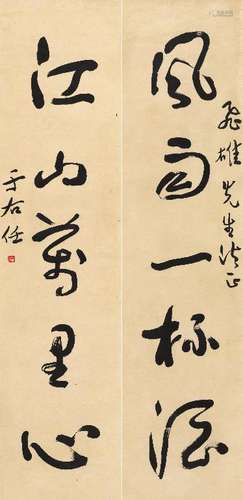 飛雄先生法正
風雨一杯酒
江山萬里心
于右任